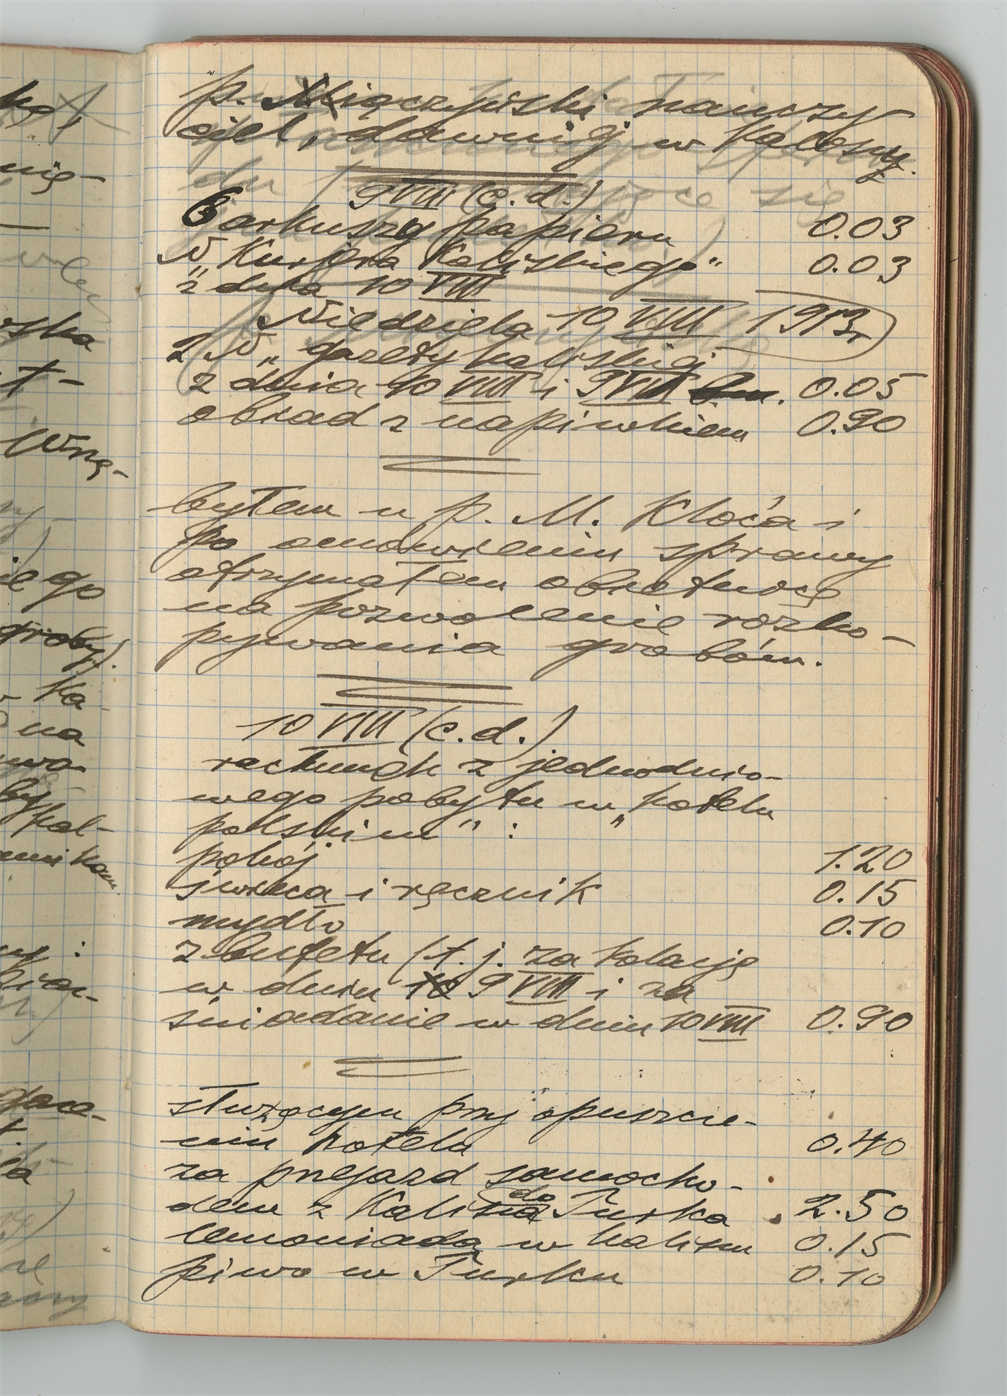 p. Miączyński nauczy-
ciel, dawniej w
9 VIII (c. d.)
6 arkuszy papieru 0.03
N "Kurjera Kaliskiego" 0.03
z dnia 10 VIII
Niedziela 10 VIII 1913 r.
2 N "gazety kaliskiej
z dnia 10 VIII i 9 VIII 0.05
obiad z napiwkiem 0.90
byłem u p. M. Kloca i
po omówieniu sprawy
otrzymałem obietnicę
na pozwolenie rozko-
pywania grobów.
10 VIII (c. d.)
rachunek z jednodnio-
wego pobytu w "hotelu
polskim" :
pokój 1.20
świeca i ręcznik 0.15
mydło 0.10
z bufetu (t. j. za kolację
w dniu 9 VIII i za
śniadanie w dniu 10 VIII 0.90
służącym przy opuszcze-
niu hotelu 0.40
za przejazd samocho-
dem z Kalisza do Turka 2.50
lemoniada w Kaliszu 0.15
piwo w Turku 0.10
ka,
nię-
rska
t-
Wrę-
iego
groby).
- Ka-
na
kol-